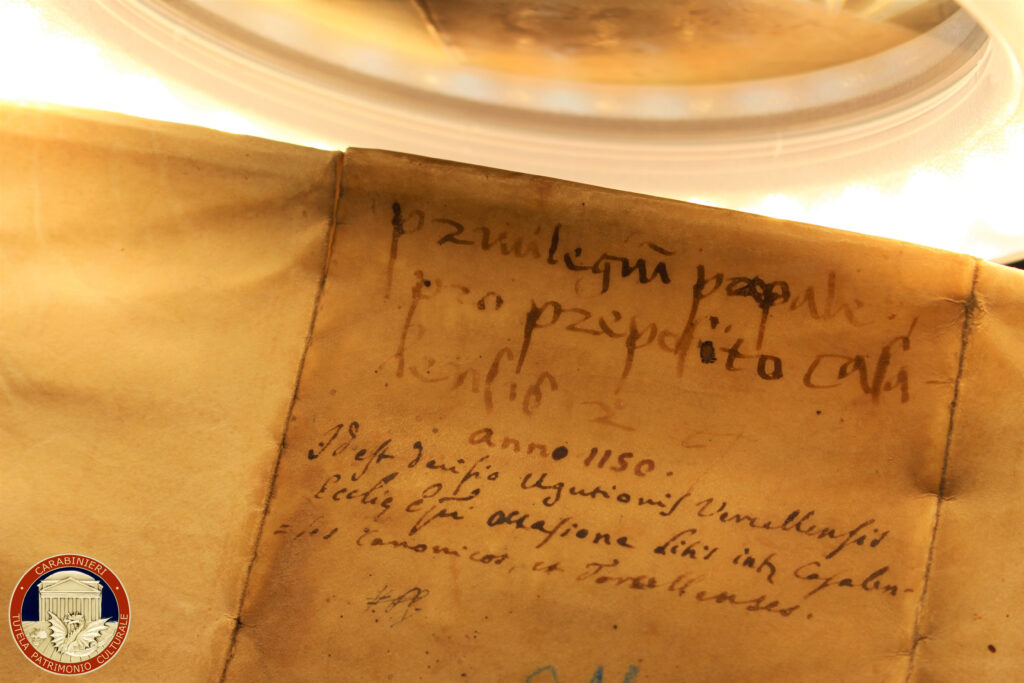 pRiuilegiū papale
pro prepoito Casa-
lensis 2
anno 1150.
Id est decisio Ugutionis Vercellensis
Ecclię Epi occasione litis intr Casalen-
=ses Canonicos, et Torcellenses.
CARABINIERI
TUTELA PATRIMONIO CULTURALE